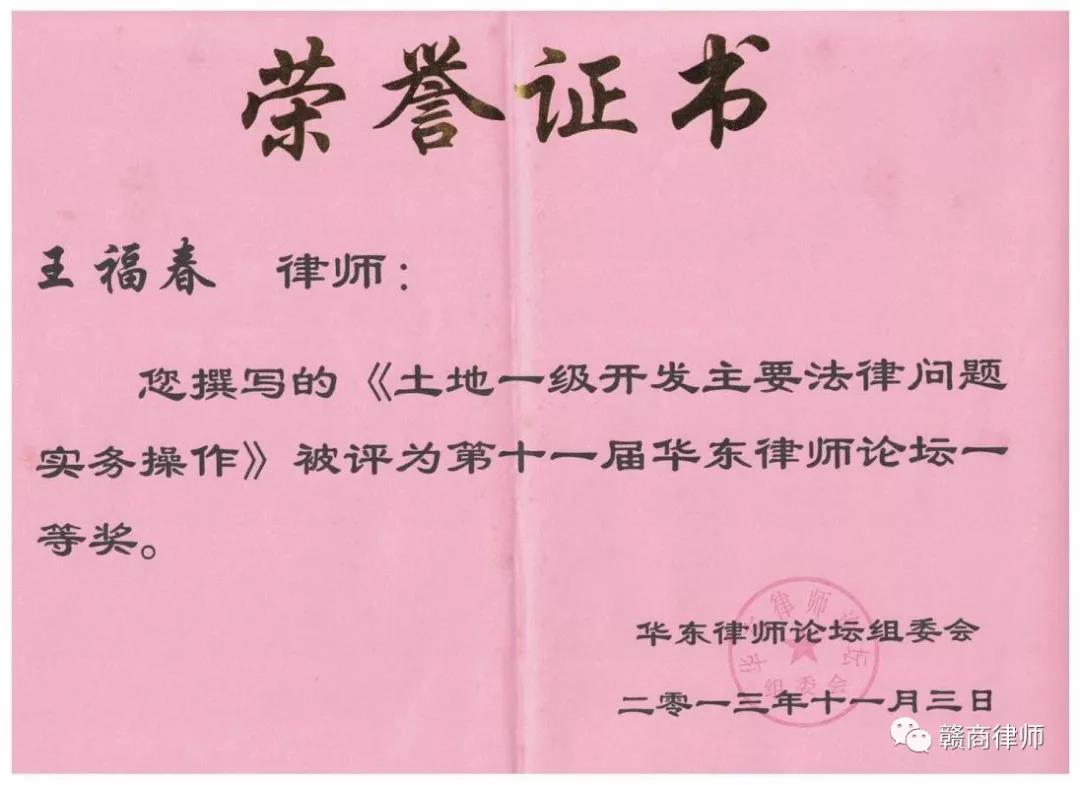 荣誉证书
王福春 律师：
您撰写的《土地一级开发主要法律问题
实务操作》被评为第十一届华东律师论坛一
等奖。
华东律师论坛组委会
二零一三年十一月三日
赣商律师